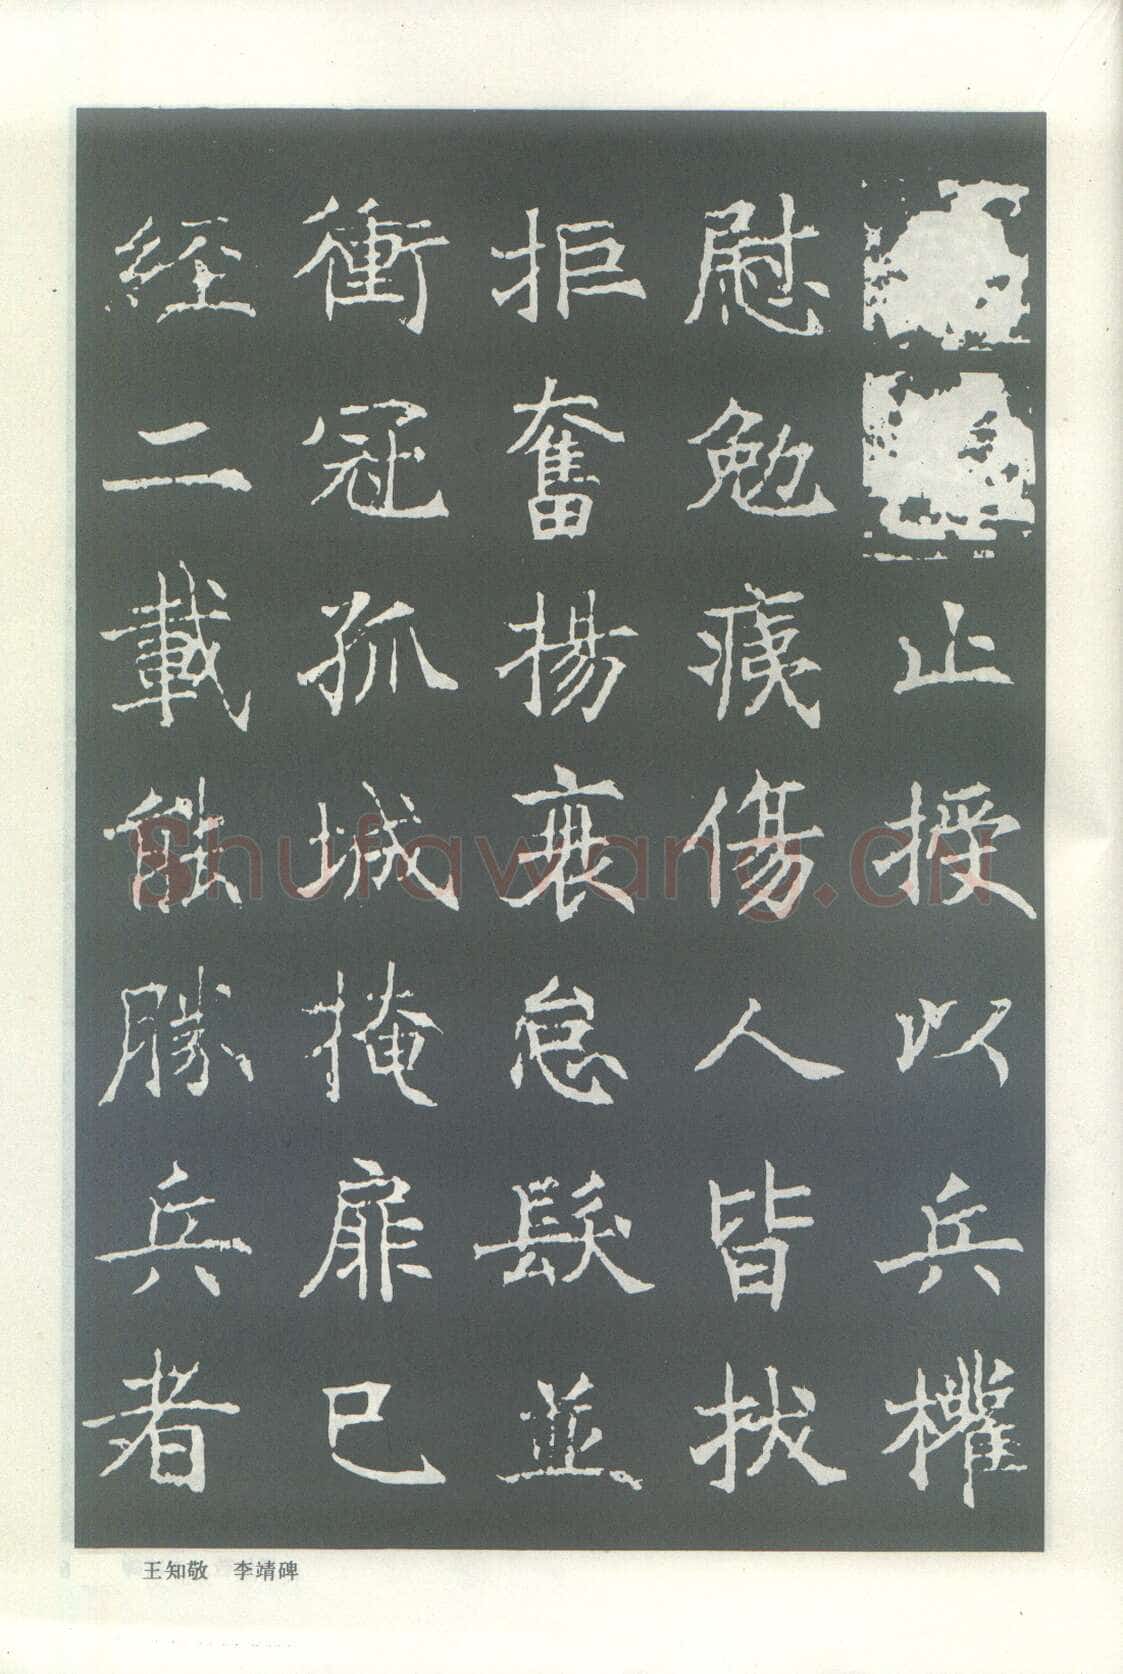 止授以兵權
慰勉痍傷人皆拔
拒奮揚衰怠髮並
衝冠孤城掩扉已
經二載能勝兵者
王知敬 李靖碑
Shufawang.CN